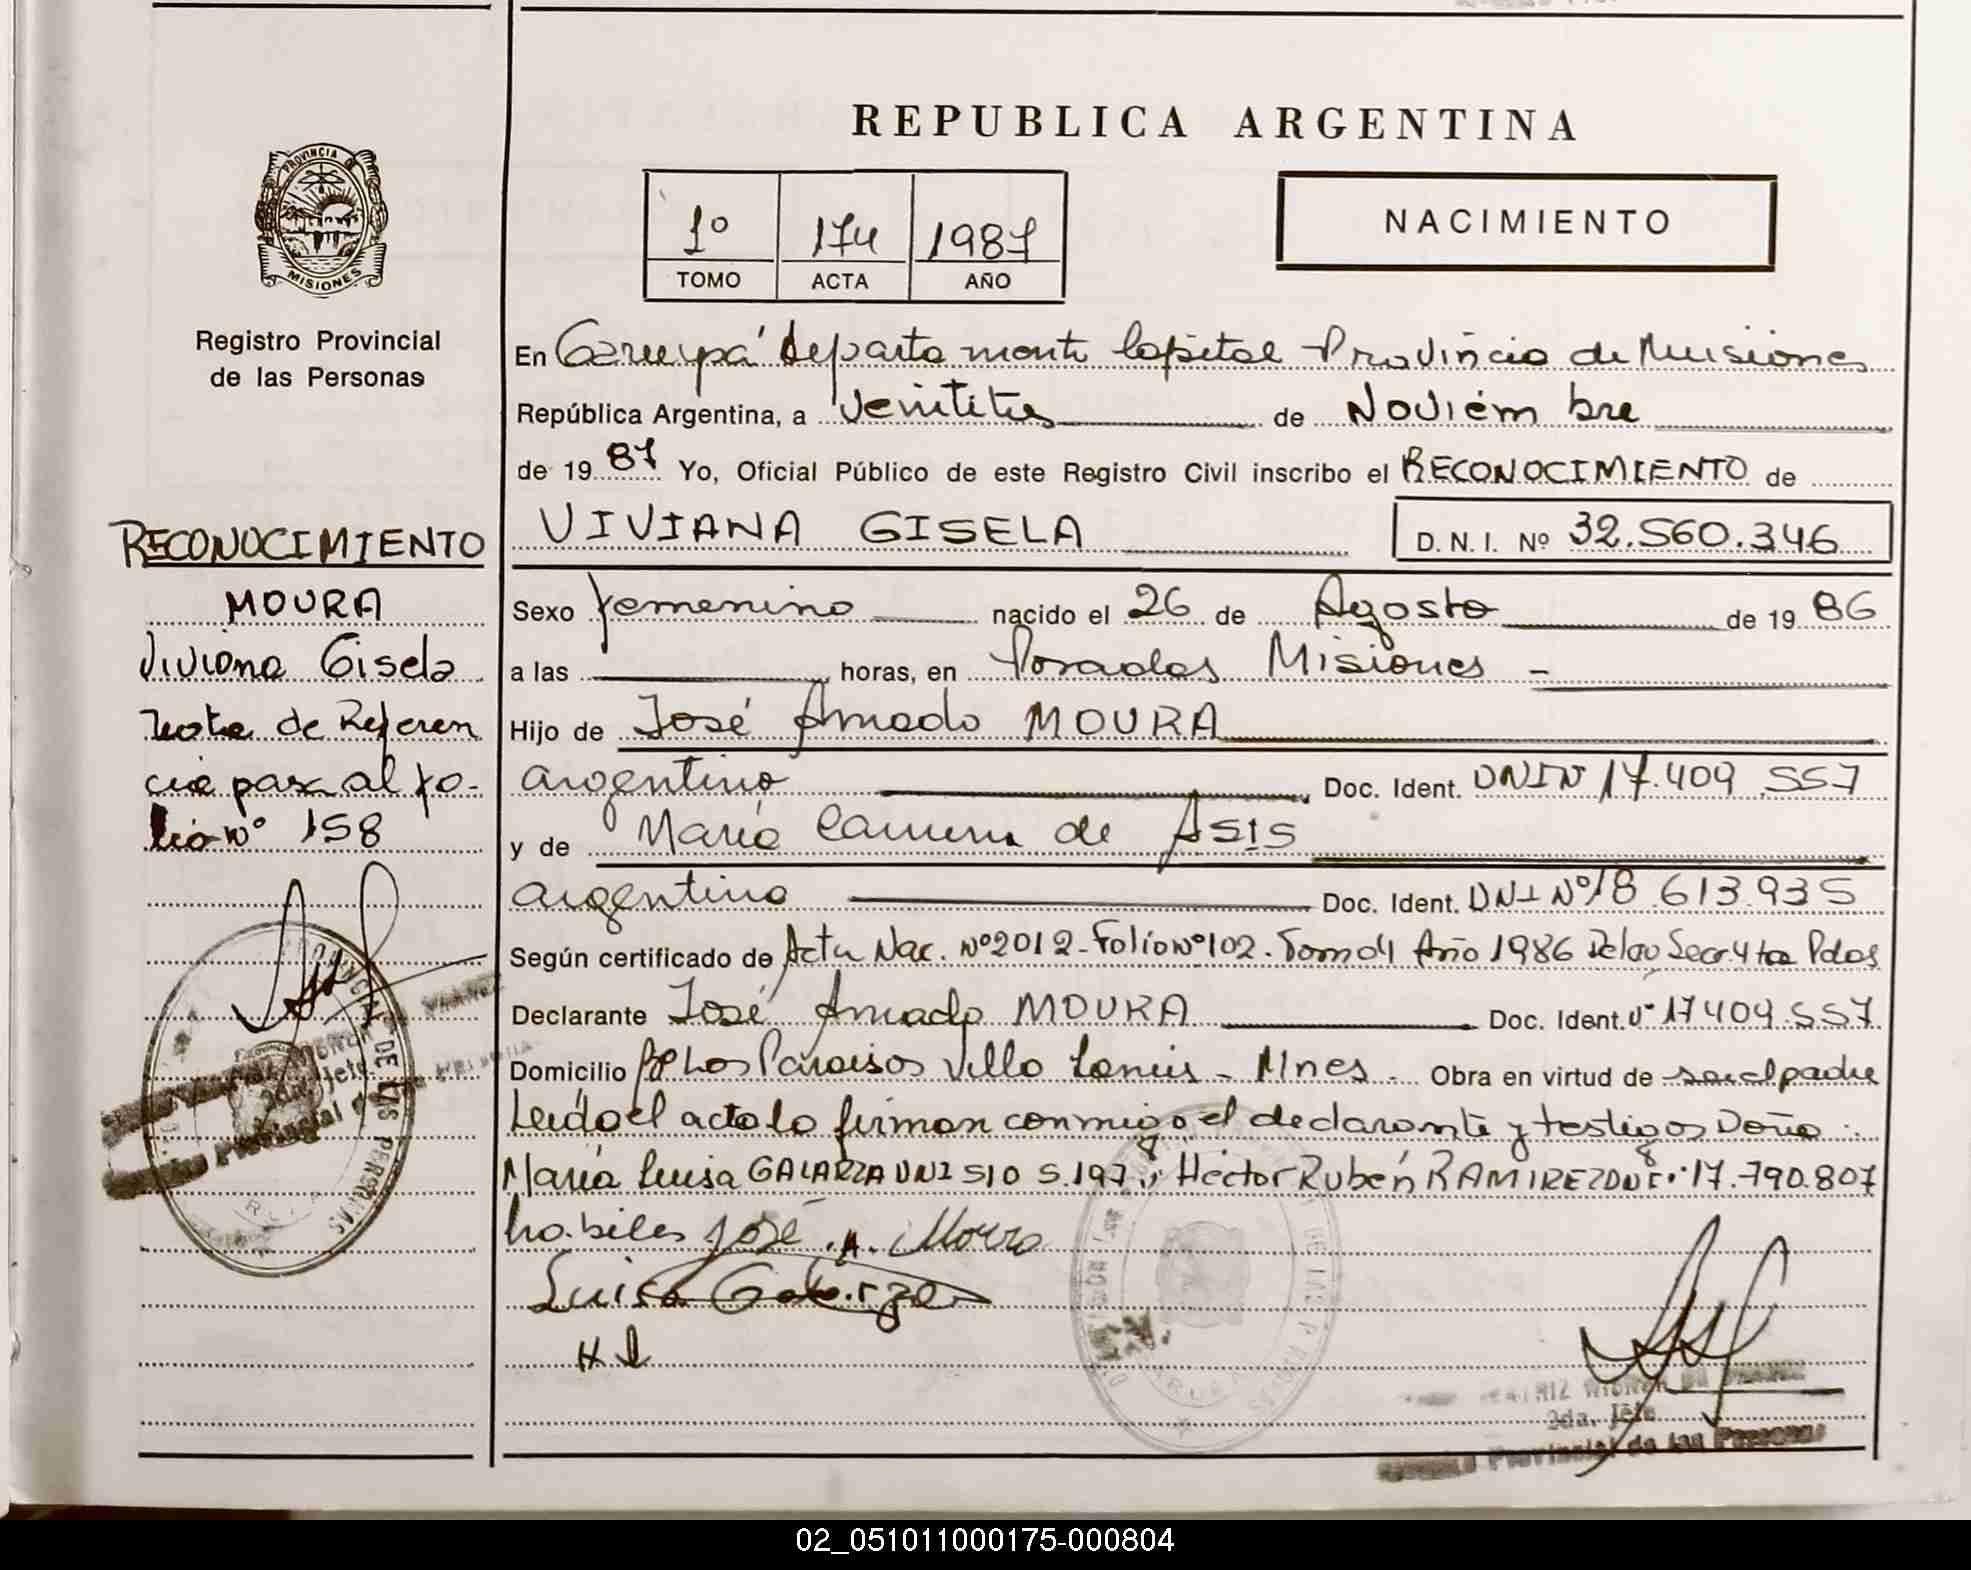 REPUBLICA ARGENTINA
PROVINCIA DE MISIONES
1º 174 1987
TOMO ACTA AÑO
NACIMIENTO
Registro Provincial
de las Personas
RECONOCIMIENTO
MOURA
Viviana Gisela
Nota de Referen
cia pasar al fo-
lio Nº 158
En Garupá departamento Capital Provincia de Misiones
República Argentina, a veintitres de Noviembre
de 1987 Yo, Oficial Público de este Registro Civil inscribo el RECONOCIMIENTO de
VIVIANA GISELA D. N. I. Nº 32.560.346
Sexo femenino nacido el 26 de Agosto de 1986
a las horas, en Posadas Misiones -
Hijo de José Amado MOURA
argentino Doc. Ident. DNI N 17.409.557
y de María Carmen de ASIS
argentina Doc. Ident. DNI Nº 18.613.935
Según certificado de Acta Nac. Nº 2012 - Folio Nº 102 - Tomo 4 Año 1986 De la Secc 4ta Pdas
Declarante José Amado MOURA Doc. Ident. Nº 17409.557
Domicilio Los Paraisos Villa Lanus - Mnes. Obra en virtud de ser el padre
Leido el acto lo firman conmigo el declarante y testigos Doña
María Luisa GALARZA DNI 5105.197 y Héctor Rubén RAMIREZ DNI 17.790.807
habiles José A. Moura
Luisa Galarza
2da. Jefe
Provincial de las Personas
02_051011000175-000804